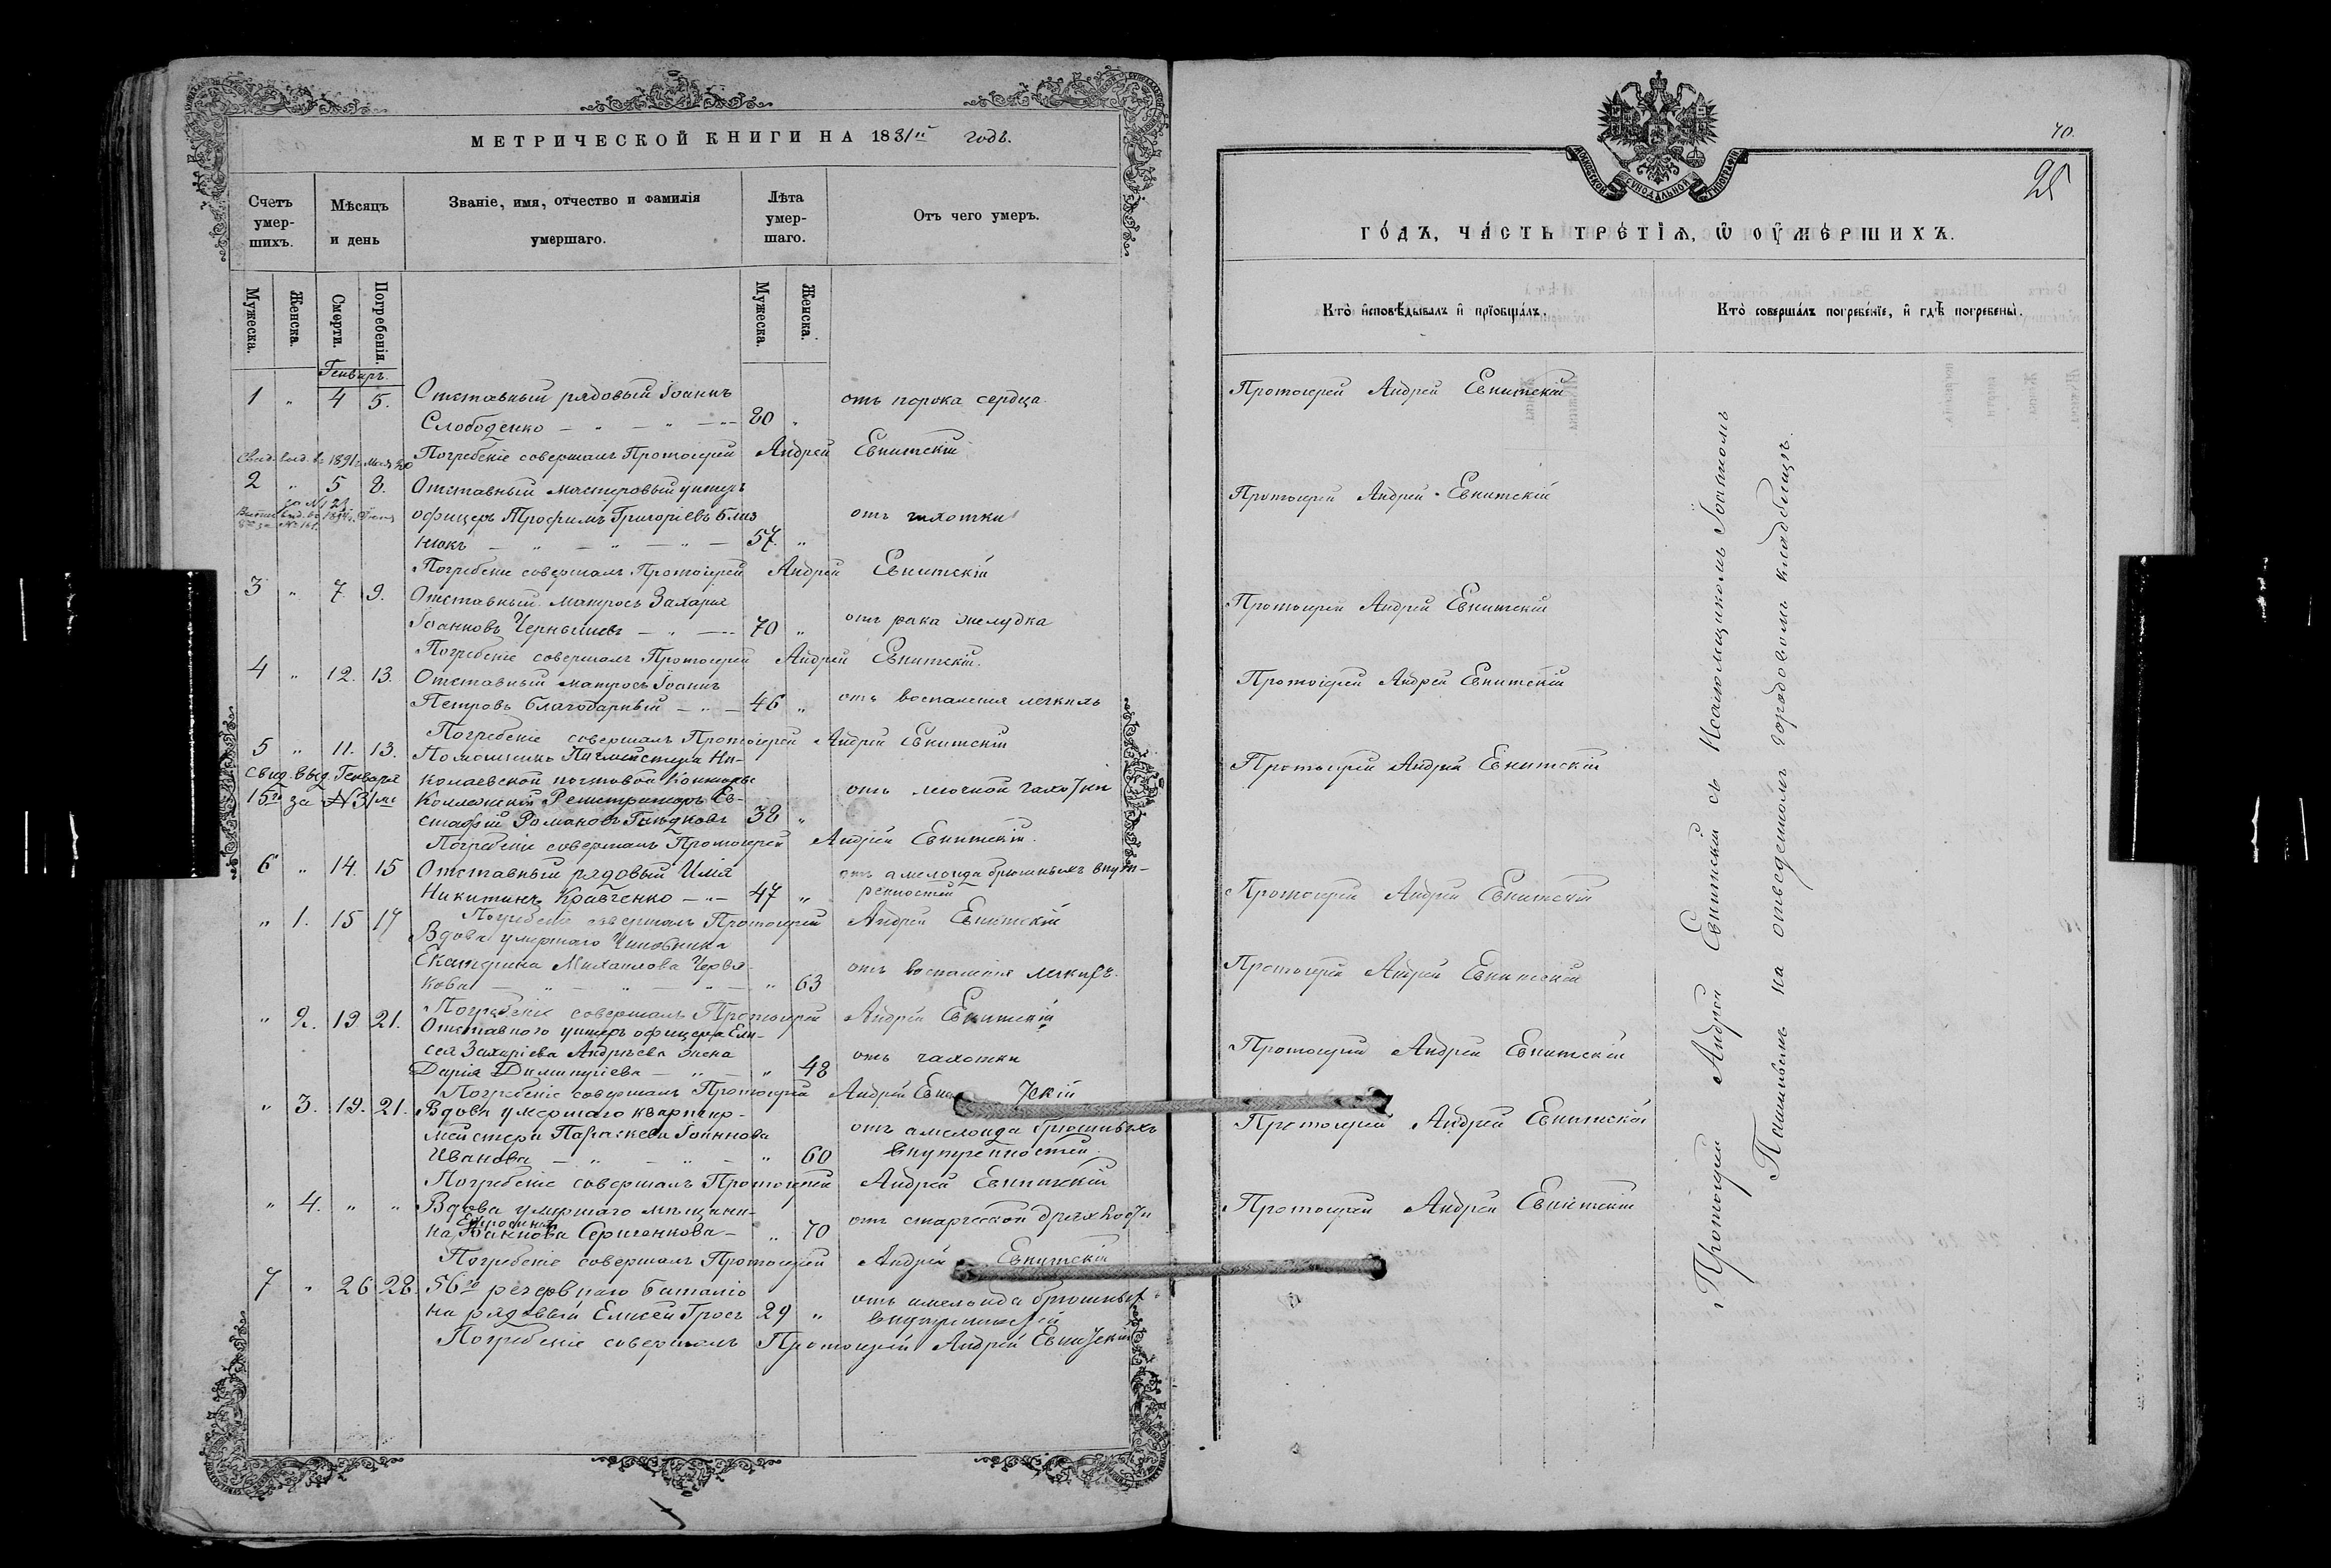 МЕТРИЧЕСКОЙ КНИГИ НА 1881й годъ.
Счетъ умер-шихъ.
Мѣсяцъ и день
Званіе, имя, отчество и фамилія умершаго.
Лѣта умер-шаго.
Отъ чего умеръ.
Мужеска.
Женска.
Смерти.
Погребенія.
Мужеска.
Женска.
Генварь.
1 " 4 5. Отставный рядовый Іоаннъ
Слободенко — " — " — 80 "
отъ порока сердца.
Погребеніе совершалъ Протоіерей Андрей Евнитскій
2 " 5 8. Отставный мастеровый унтеръ
офицеръ Трофимъ Григоріевъ Близ
нюкъ — " — " — " — 57. "
отъ чахотки
Погребеніе совершалъ Протоіерей Андрей Евнитскій
3 " 7. 9. Отставный матросъ Захарія
Іоанновъ Чернышевъ — " — 70 "
отъ рака желудка
Погребеніе совершалъ Протоіерей Андрей Евнитскій.
4 " 12. 13. Отставный матросъ Іоаннъ
Петровъ Благодарный — " — 46 "
отъ воспаленія легкихъ
Погребеніе совершалъ Протоіерей Андрей Евнитскій
5 " 11. 13. Помошникъ Почмейстера Ни-
свид. выд. Генваря
колаевской почтовой Конторы
15го за №31мъ
Коллежскій Регистраторъ Ев-
стафій Романовъ 38 "
отъ легочной чахотки
Погребеніе совершалъ Протоіерей Андрей Евнитскій.
6 " 14. 15 Отставный рядовый Илія
Никитинъ Кравченко — " — 47 "
отъ амелоида брюшныхъ внут-
ренностей
Погребеніе совершалъ Протоіерей Андрей Евнитскій
" 1. 15 17 Вдова умершаго Чиновника
Екатерина Михаилова Червя-
кова — " — " — " — " 63
отъ воспаленія легкихъ.
Погребеніе совершалъ Протоіерей Андрей Евнитскій
" 2. 19 21. Отставного унтеръ офицера Ели-
сея Захаріева Андреева жена
Дарія Димитріева — " — " 48
отъ чахотки
Погребеніе совершалъ Протоіерей Андрей Евнитскій
" 3. 19. 21. Вдова умершаго квартир-
мейстера Параскева Іоаннова
Иванова — " — " — " 60
отъ амелоида брюшныхъ
внутренностей.
Погребеніе совершалъ Протоіерей Андрей Евнитскій
" 4. " " Вдова умершаго мѣщани-
Евфросинія
на Іоаннова — " 70
отъ старческой дряхлости
Погребеніе совершалъ Протоіерей Андрей Евнитскій
7 " 26 28. 56го резервнаго баталіо
на рядовый Елисей Гросъ 29 "
отъ амелоида брюшныхъ
внутренностей
Погребеніе совершалъ Протоіерей Андрей Евнитскій
МОСКОВСКОЙ СѴНОДАЛЬНОЙ ТИПОГРАФІИ
40.
25
ГО́ДЪ, ЧА́СТЬ ТРЕ́ТІѦ, Ѡ ОУ҆МЕ́РШИХЪ.
Кто̀ и҆сповѣ́дывалъ и҆ прїовща́лъ.
Кто̀ соверша́лъ погребе́нїе, и҆ гдѣ̀ погребены̀.
Протоіерей Андрей Евнитскій
Протоіерей Андрей Евнитскій
Протоіерей Андрей Евнитскій
Протоіерей Андрей Евнитскій
Протоіерей Андрей Евнитскій
Протоіерей Андрей Евнитскій
Протоіерей Андрей Евнитскій
Протоіерей Андрей Евнитскій
Протоіерей Андрей Евнитскій
Протоіерей Андрей Евнитскій
Протоіерей Андрей Евнитскій съ Псаломщикомъ Іоанномъ
на отведенномъ городовомъ кладбищѣ.